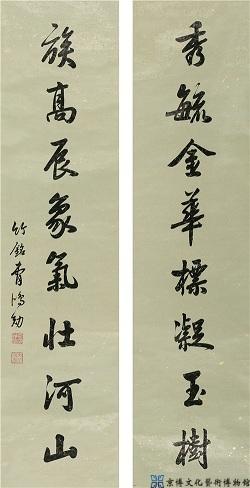 秀毓金華標凝玉樹
族高辰象氣壯河山
竹銘曹鴻勛
京博文化藝術博物館